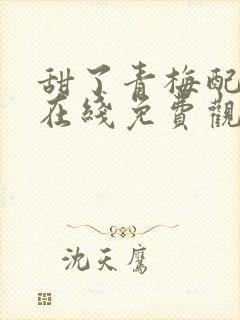 甜了青梅配
在綫免費觀
沈天鷹